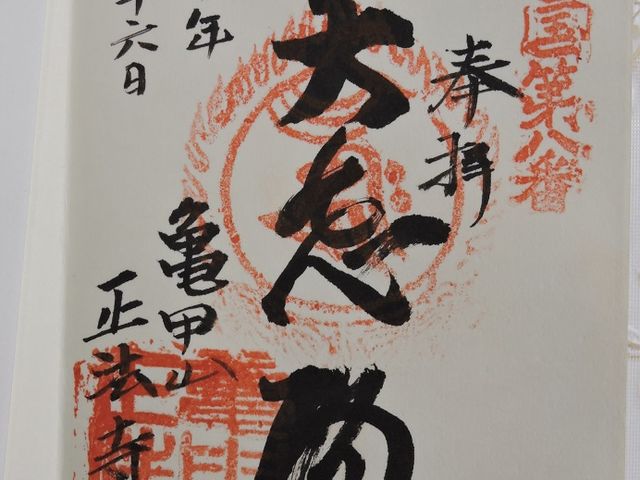 国第八番
奉拝
大悲
亀甲山
正法寺
年
六日